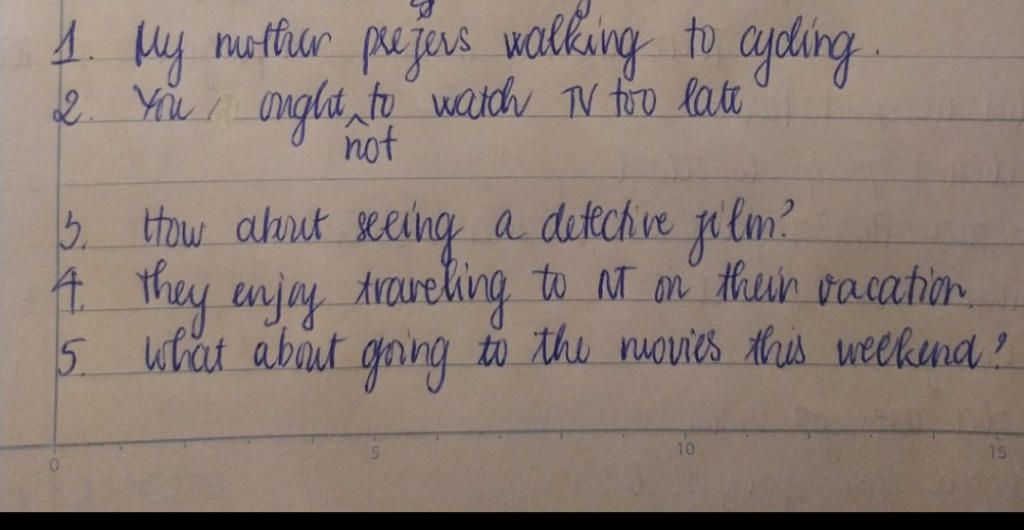 1. My mother prefers walking to cycling.
2. You ought to watch TV too late
not
3. How about seeing a detective film?
4. they enjoy traveling to NT on their vacation.
5. What about going to the movies this weekend?
0 5 10 15